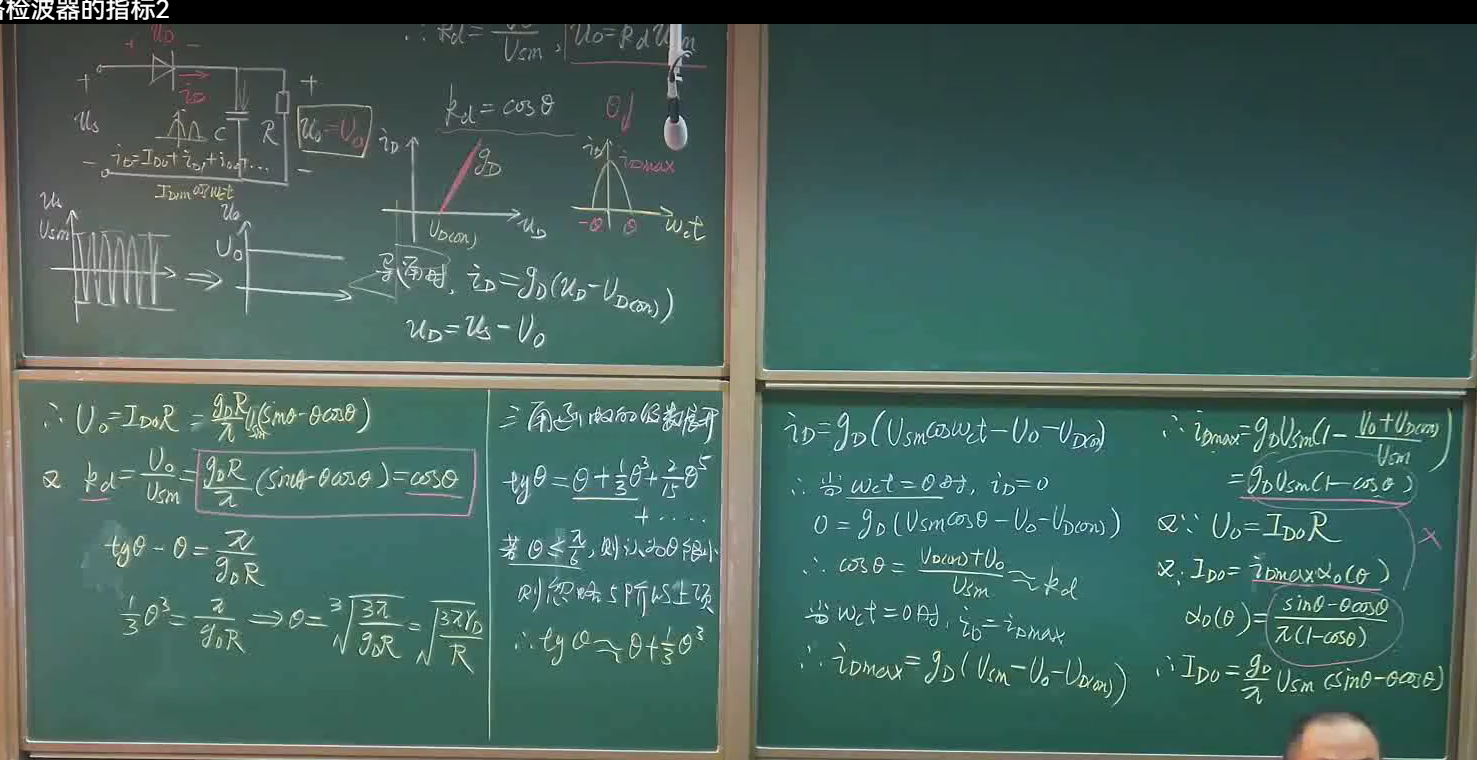 检波器的指标2
∴ kd = Uo/Usm, Uo = kd Usm
+ uD −
iD
+
us
−
C
R
+
uo = Uo
−
iD = ID0 + iD1 + iD2 + ...
ID1m cosωct
kd = cosθ
θ↓
iD
gD
UD(on)
uD
iD
iDmax
−θ θ ωct
us
Usm
⇒
uo
Uo
导通时, iD = gD(uD − UD(on))
uD = us − Uo
∴ Uo = ID0R = gDR/π Usm(sinθ − θcosθ)
又 kd = Uo/Usm = gDR/π (sinθ − θcosθ) = cosθ
tgθ − θ = π/gDR
1/3 θ³ = π/gDR ⇒ θ = ³√(3π/gDR) = √(3πrD/R)
三角函数的级数展开
tgθ = θ + 1/3 θ³ + 2/15 θ⁵
+ ....
若 θ ≤ π/6, 则认为θ很小
则忽略5阶以上项
∴ tgθ ≈ θ + 1/3 θ³
iD = gD(Usm cosωct − Uo − UD(on))
∴ 当 ωct = θ 时, iD = 0
0 = gD(Usm cosθ − Uo − UD(on))
∴ cosθ = (UD(on) + Uo)/Usm ≈ kd
当 ωct = 0 时, iD = iDmax
∴ iDmax = gD(Usm − Uo − UD(on))
∴ iDmax = gD Usm(1 − (Uo + UD(on))/Usm)
= gD Usm(1 − cosθ)
又∵ Uo = ID0R
又∵ ID0 = iDmax α0(θ)
×
α0(θ) = (sinθ − θcosθ)/π(1 − cosθ)
∴ ID0 = gD/π Usm (sinθ − θcosθ)